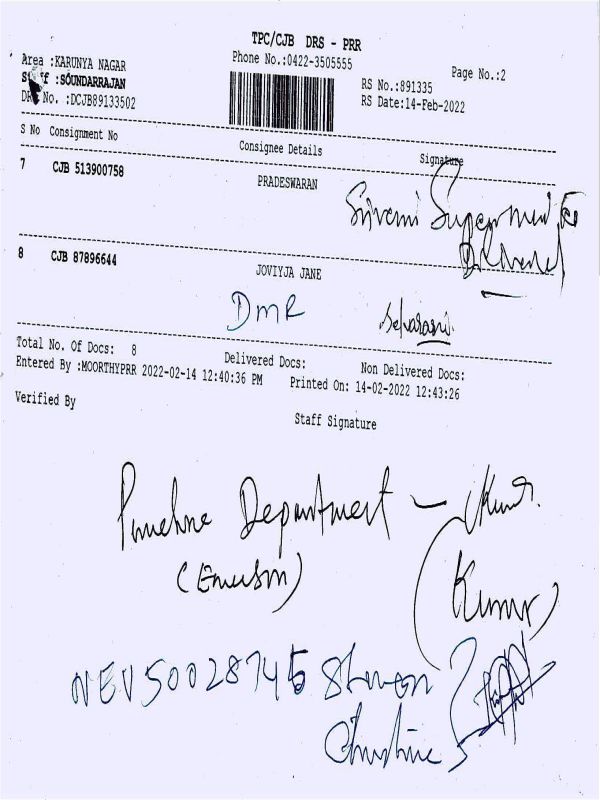 TPC/CJB DRS - PRR
Area :KARUNYA NAGAR
Phone No.:0422-3505555
Page No.:2
Staff :SOUNDARRAJAN
RS No.:891335
DRS No. :DCJB89133502
RS Date:14-Feb-2022
S No Consignment No Consignee Details Signature
7 CJB 513900758 PRADESWARAN
8 CJB 87896644 JOVIYJA JANE
DMR
Total No. Of Docs: 8 Delivered Docs: Non Delivered Docs:
Entered By :MOORTHYPRR 2022-02-14 12:40:36 PM Printed On: 14-02-2022 12:43:26
Verified By Staff Signature
Department - Kumar
(Emerson) (Kumar)
NEV50028745
Christine